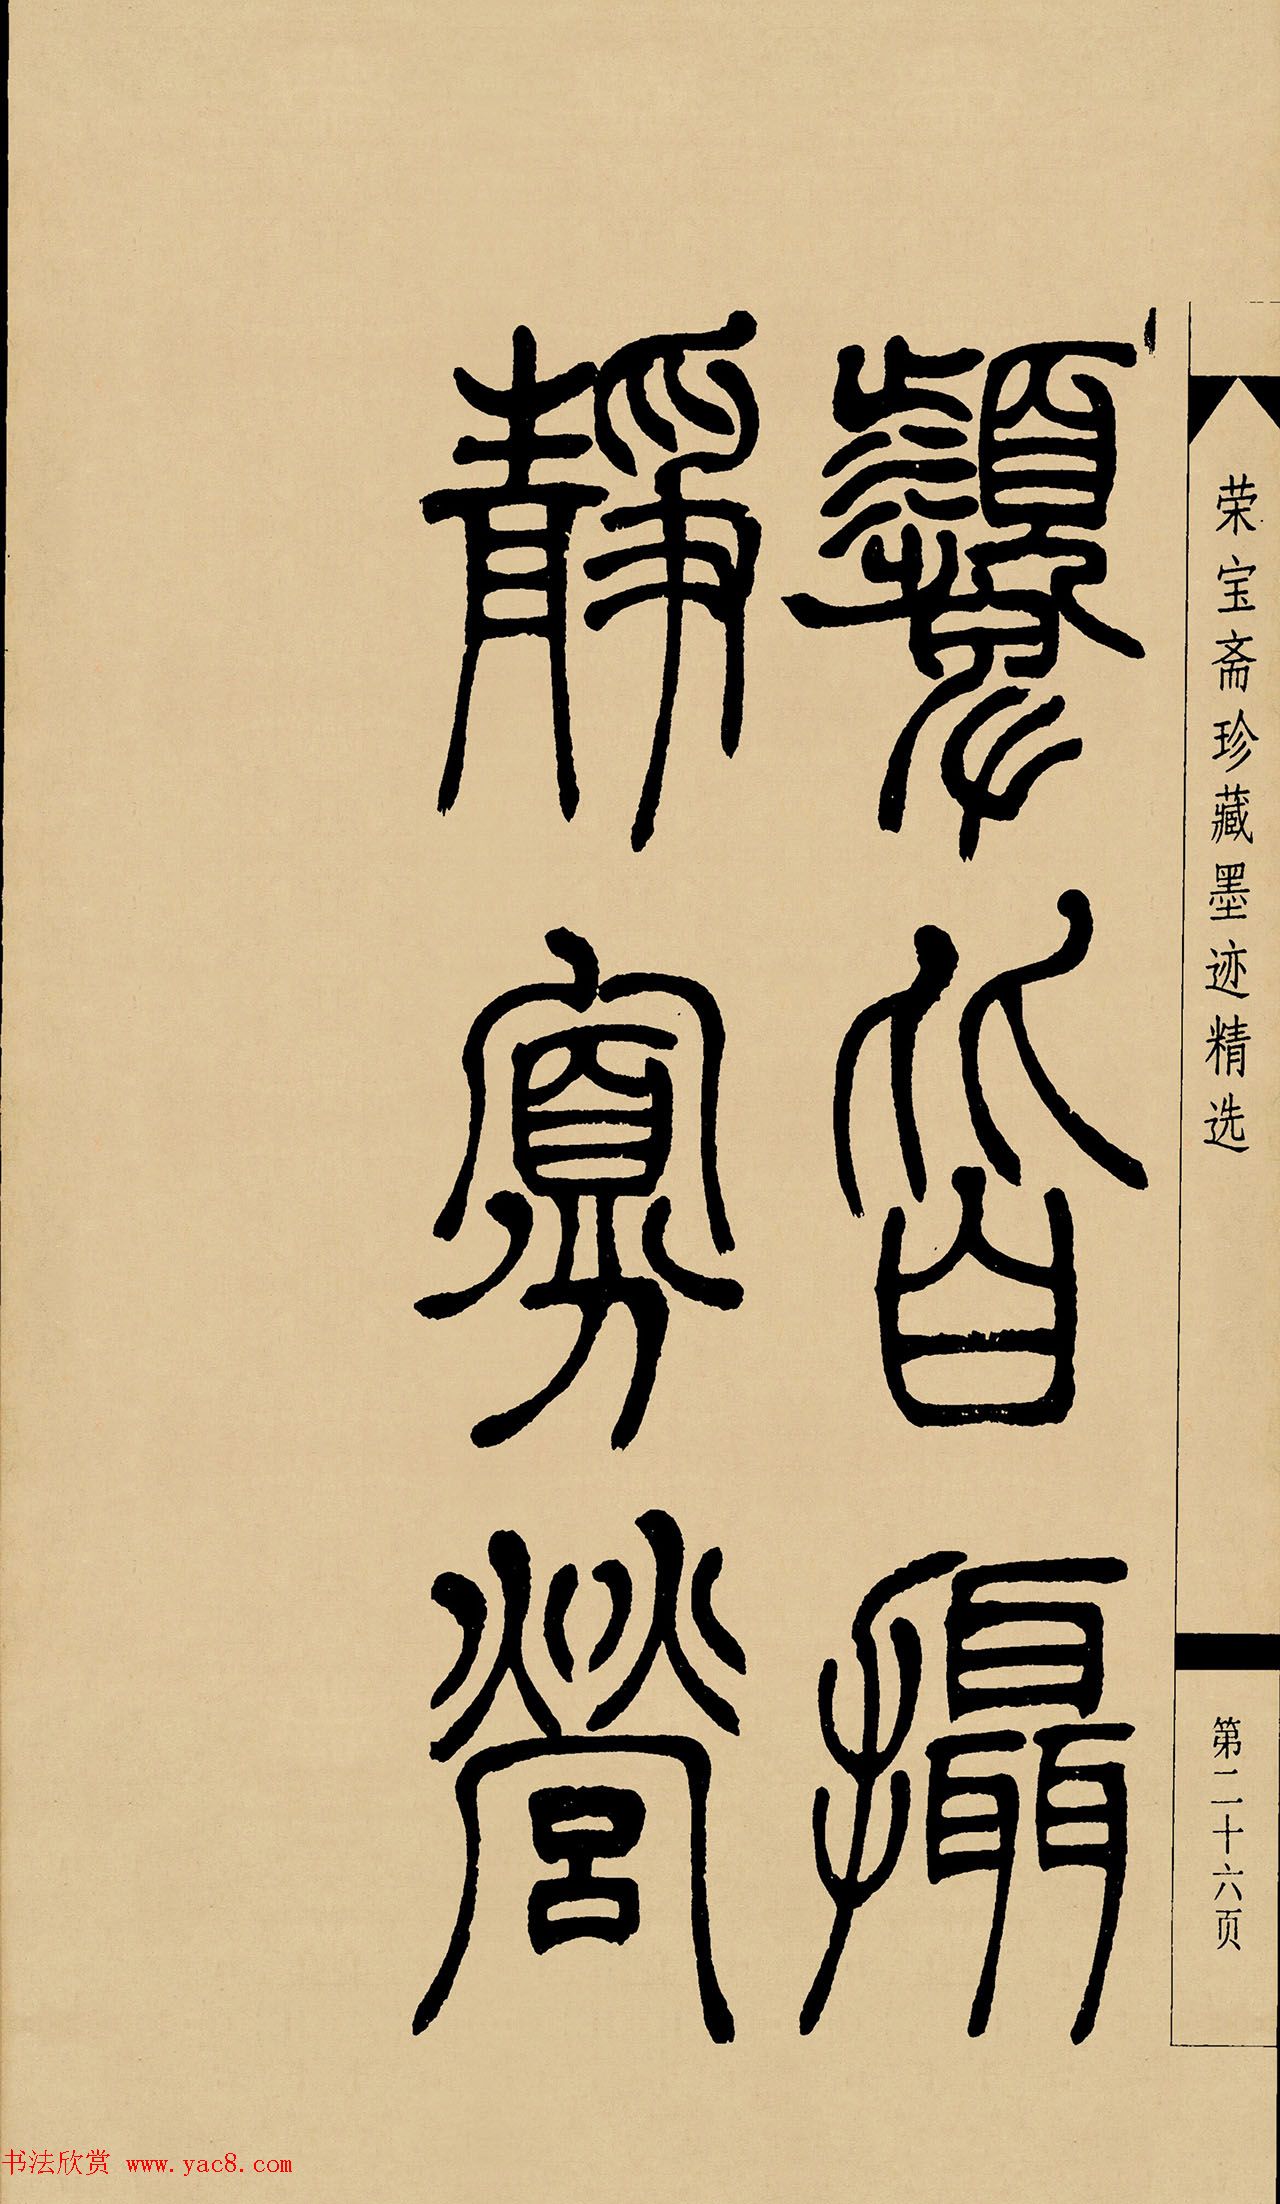 荣宝斋珍藏墨迹精选
第二十六页
顰皆攝
靜寡營
书法欣赏 www.yac8.com